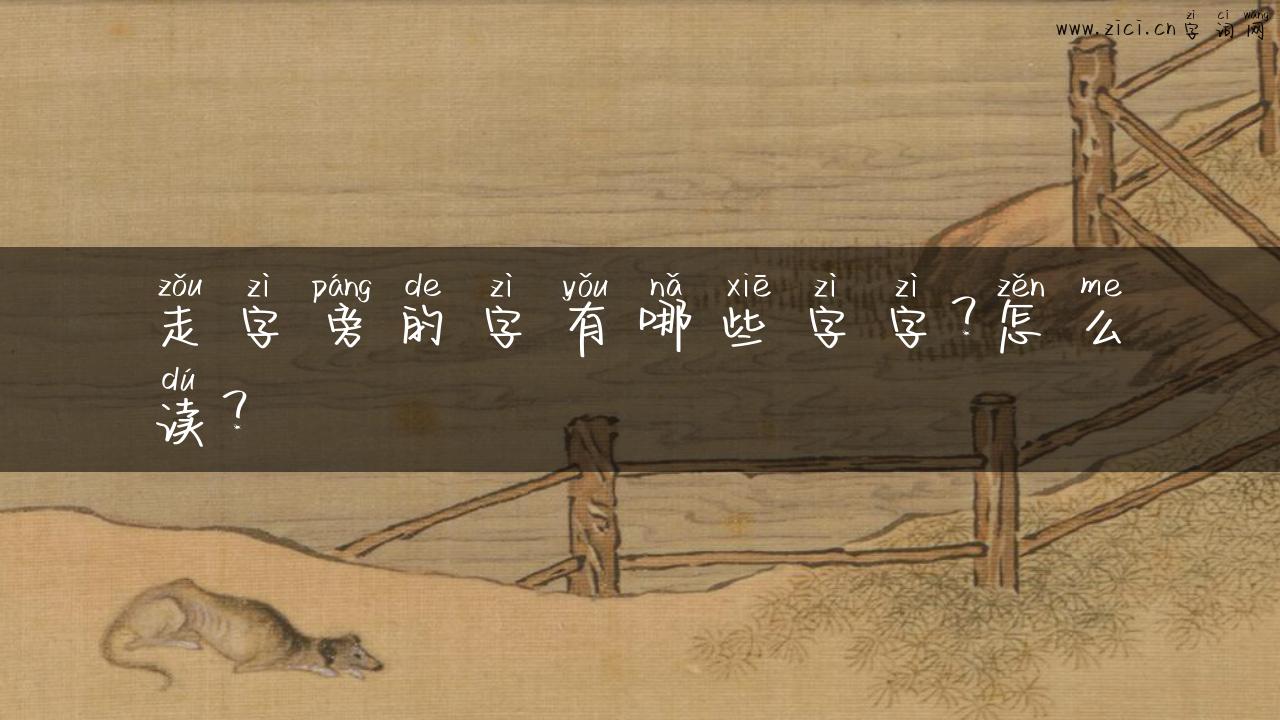 zì cì wǎng
www.zici.cn字词网
zǒu zì páng de zì yǒu nǎ xiē zì zì zěn me
走字旁的字有哪些字字？怎么
dú
读？